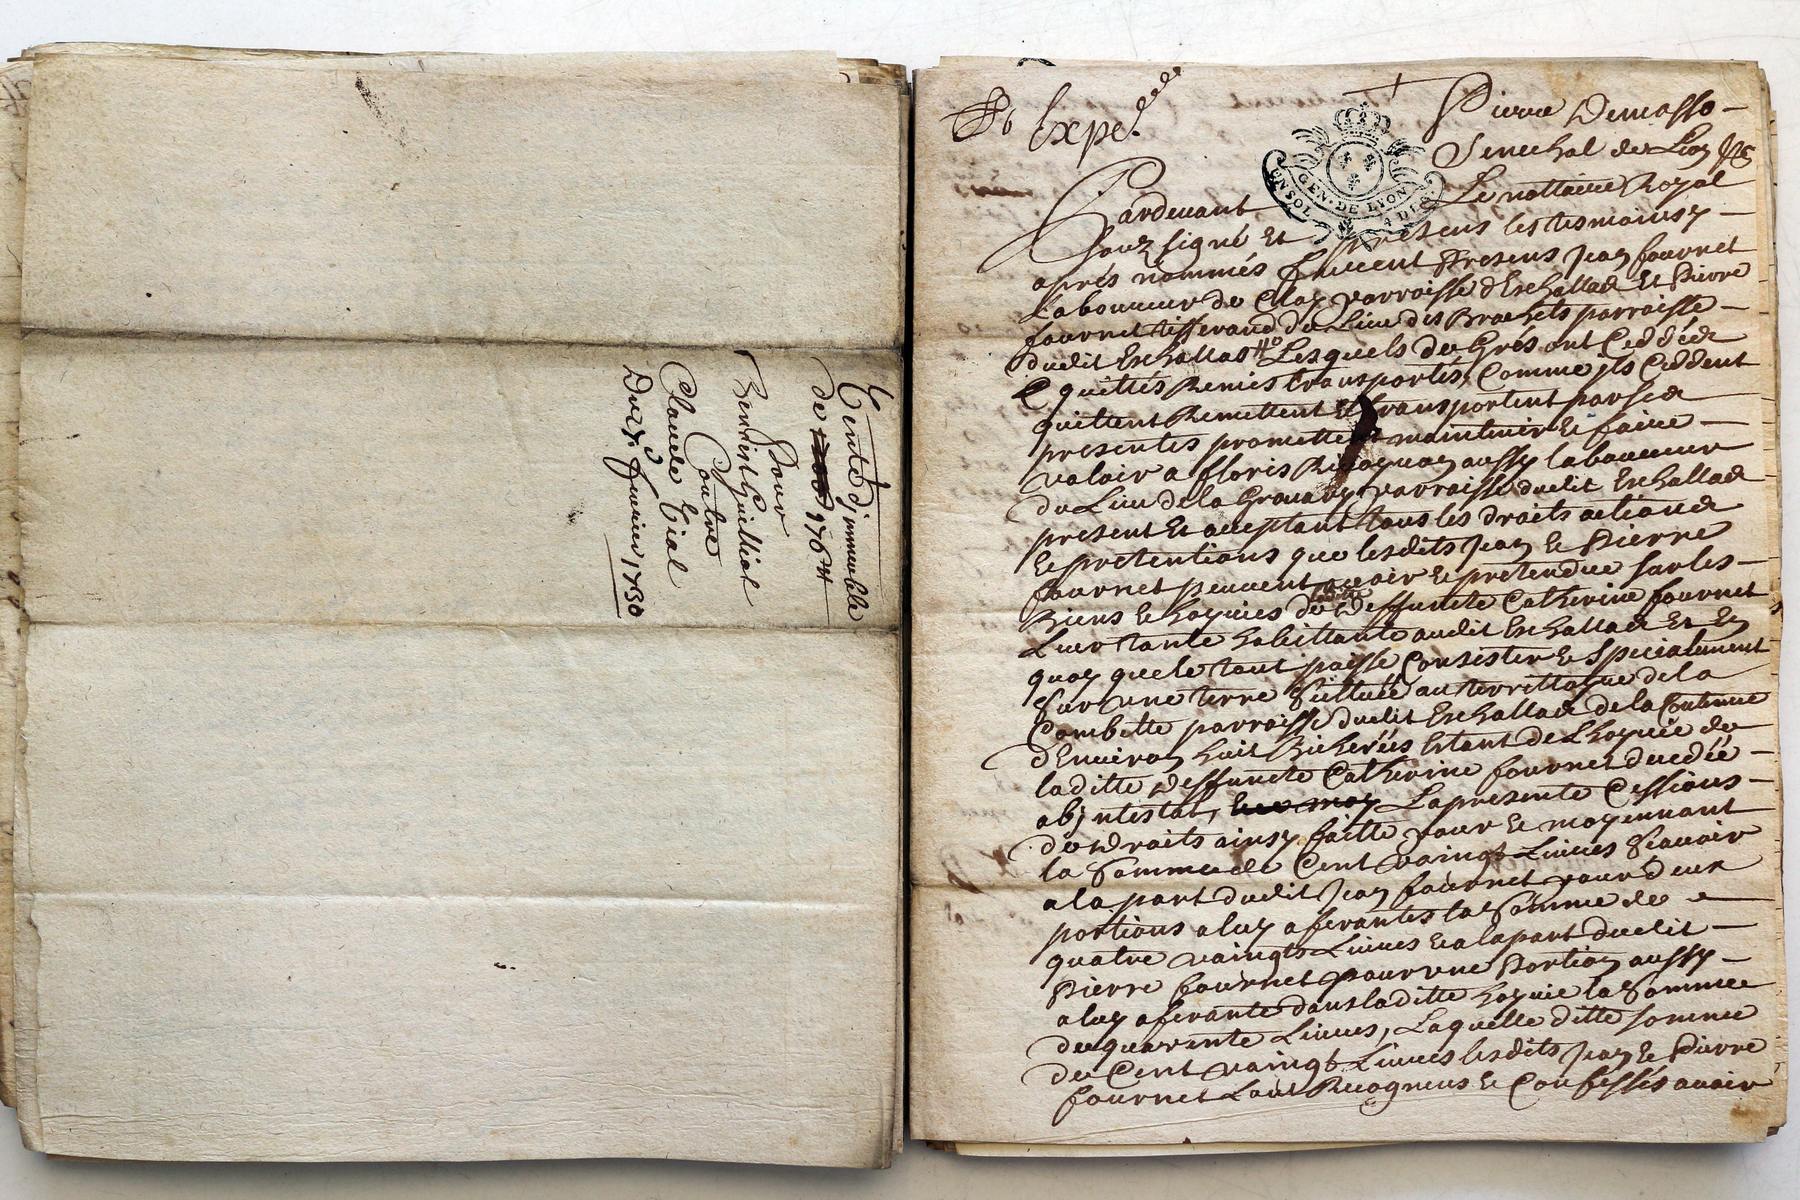 Vente d'jmmeuble
de 976 ₶
Pour
Benoist Guilliat
Contre
Claude Vial
Du 23 fevrier 1730
Expe.
Pierre Demasso
Senechal de Lion
GEN. DE LYON
Pardevant Le nottaire Royal
Souz signé Et presens les tesmoinsy
aprés nommés fuccent Presens Jean fournet
Laboureur de parroisse d'Eschallas Et Pierre
fournet tisserand du Lieu des Brochets parroisse
dudit Eschallas Lesquels de Grés ont Ceddés
quittés Remis transportés, Comme jls Ceddent
quittent Remettent Et transportent par ses
presentes promettent maintenir Et faire
valoir a floris aussy laboureur
du Lieu de la parroisse dudit Eschallas
present Et aceptant tous les droits actions
Et pretentions que lesdits Jean Et Pierre
fournet peuvent avoir Et pretendre sur les
Biens Et hoyries de deffuncte Catherine fournet
Leur tante habittante audit Eschallas Et En
quoy que le tout puisse Consister Et Specialement
Sur une terre Scittuée au territtoire de la
Combette parroisse dudit Eschallas de la Contenue
d'Environ huit Bicherées Estant de Lhoyrie de
laditte deffuncte Catherine fournet decedée
abjntestat, La presente Cessions
de droits ainsy faitte pour Et moyennant
la Somme de Cent vaingt Livres Scavoir
a la part dudit Jean fournet pour deux
portions a luy aferantes la Somme de
quatre vaingts Livres Et a la part dudit
Pierre fournet pour une Portion aussy
a luy aferante dans laditte hoyrie la Somme
de quarente Livres, Laquelle ditte somme
de Cent vaingt Livres lesdits Jean Et Pierre
fournet Confessés avoir